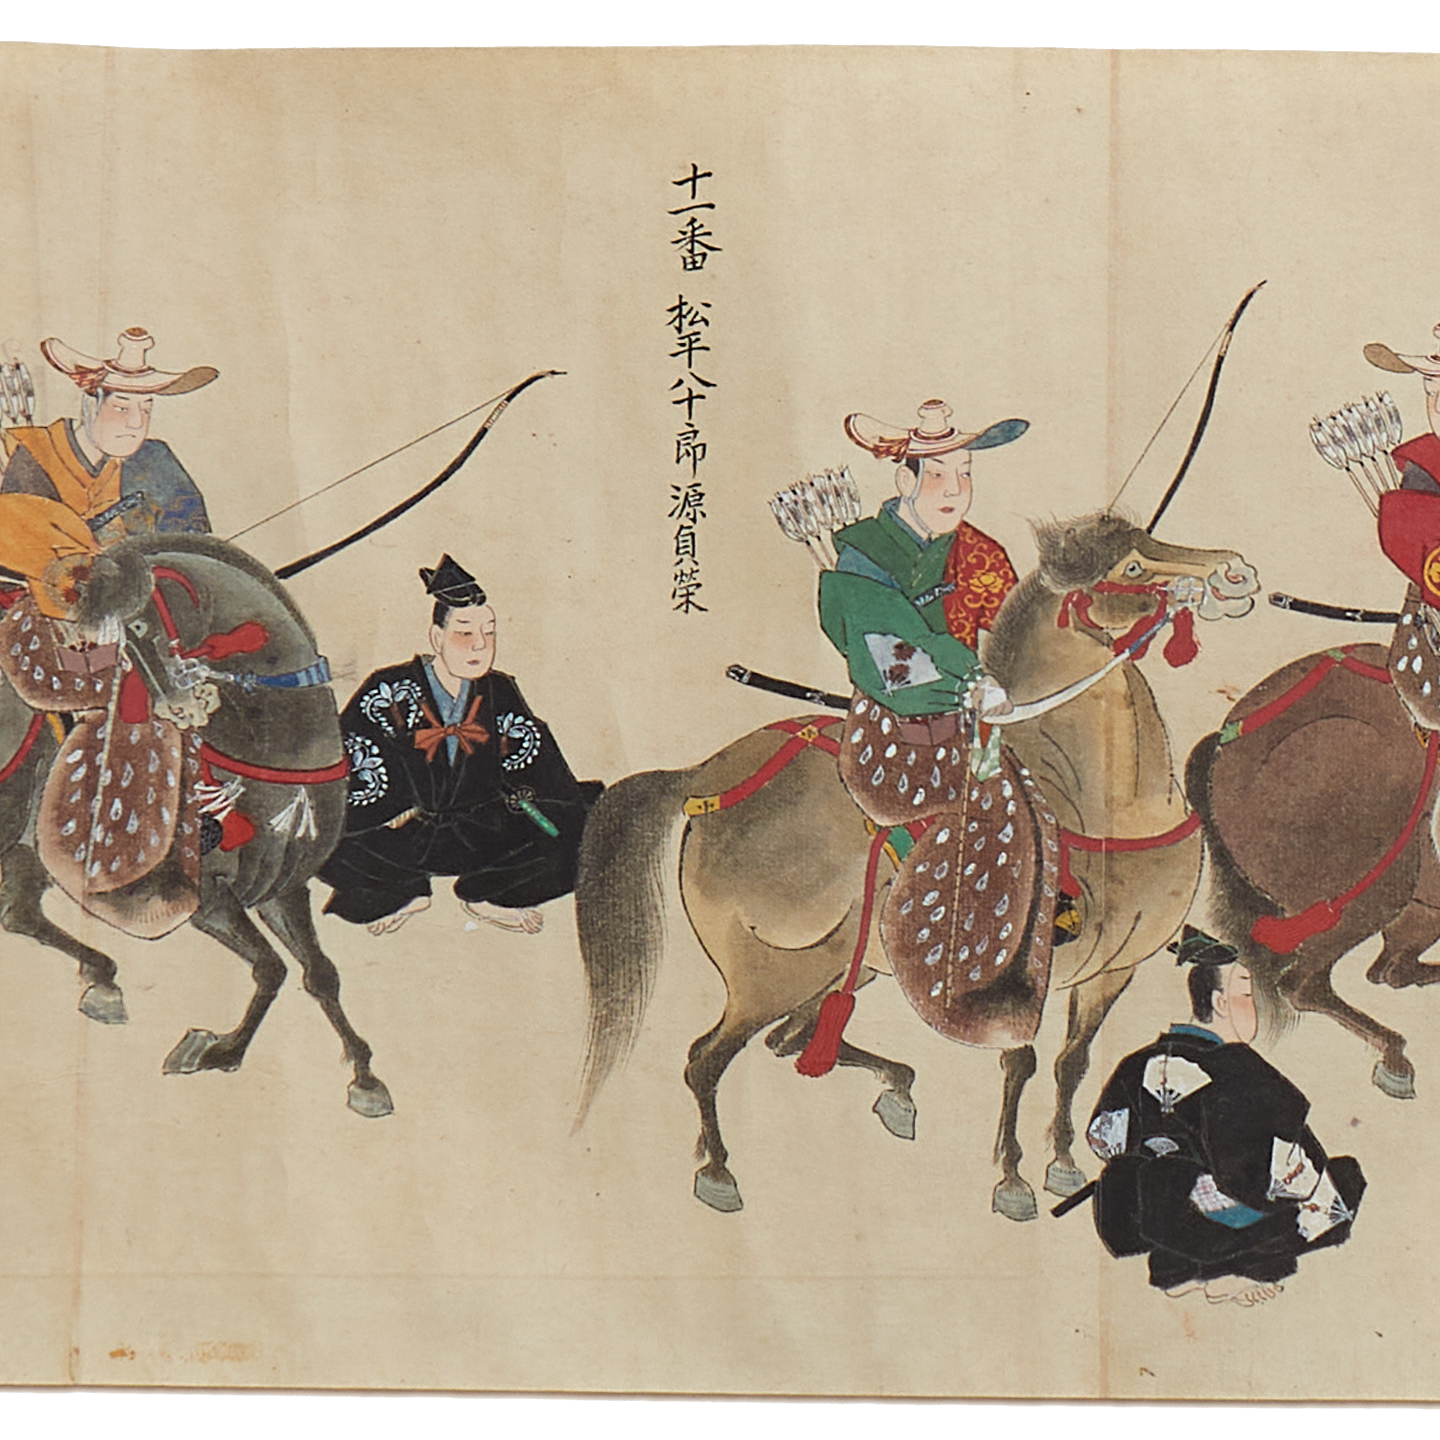 十一番 松平八十郎源貞榮